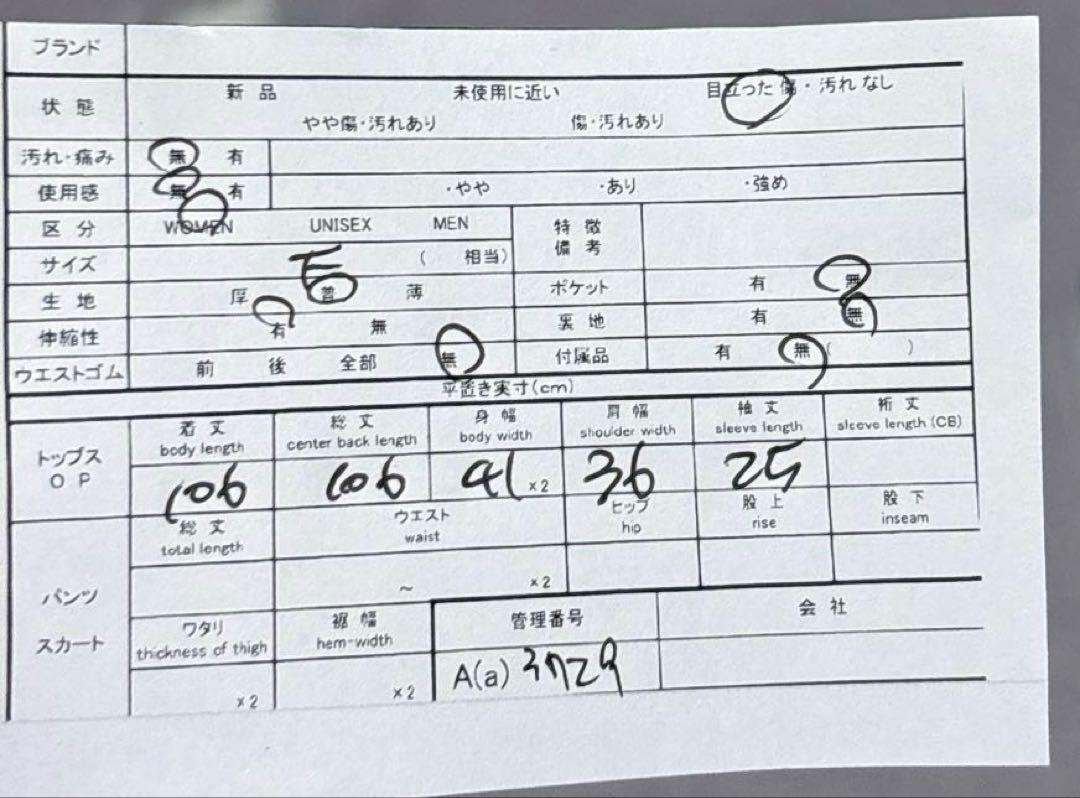 ブランド
状態 新品 未使用に近い 目立った傷・汚れなし
やや傷・汚れあり 傷・汚れあり
汚れ・痛み 無 有
使用感 無 有 ・やや ・あり ・強め
区分 WOMEN UNISEX MEN 特徴 備考
サイズ ( 相当)
生地 厚 普 薄 ポケット 有 無
伸縮性 有 無 裏地 有 無
ウエストゴム 前 後 全部 無 付属品 有 無 ( )
平置き実寸(cm)
トップス OP 着丈 総丈 身幅 肩幅 袖丈 裄丈
body length center back length body width shoulder width sleeve length sleeve length (CB)
106 106 41 ×2 36 25
パンツ スカート 総丈 ウエスト ヒップ 股上 股下
total length waist hip rise inseam
～ ×2
ワタリ 裾幅 管理番号 会社
thickness of thigh hem-width
×2 ×2 A(a) 3729